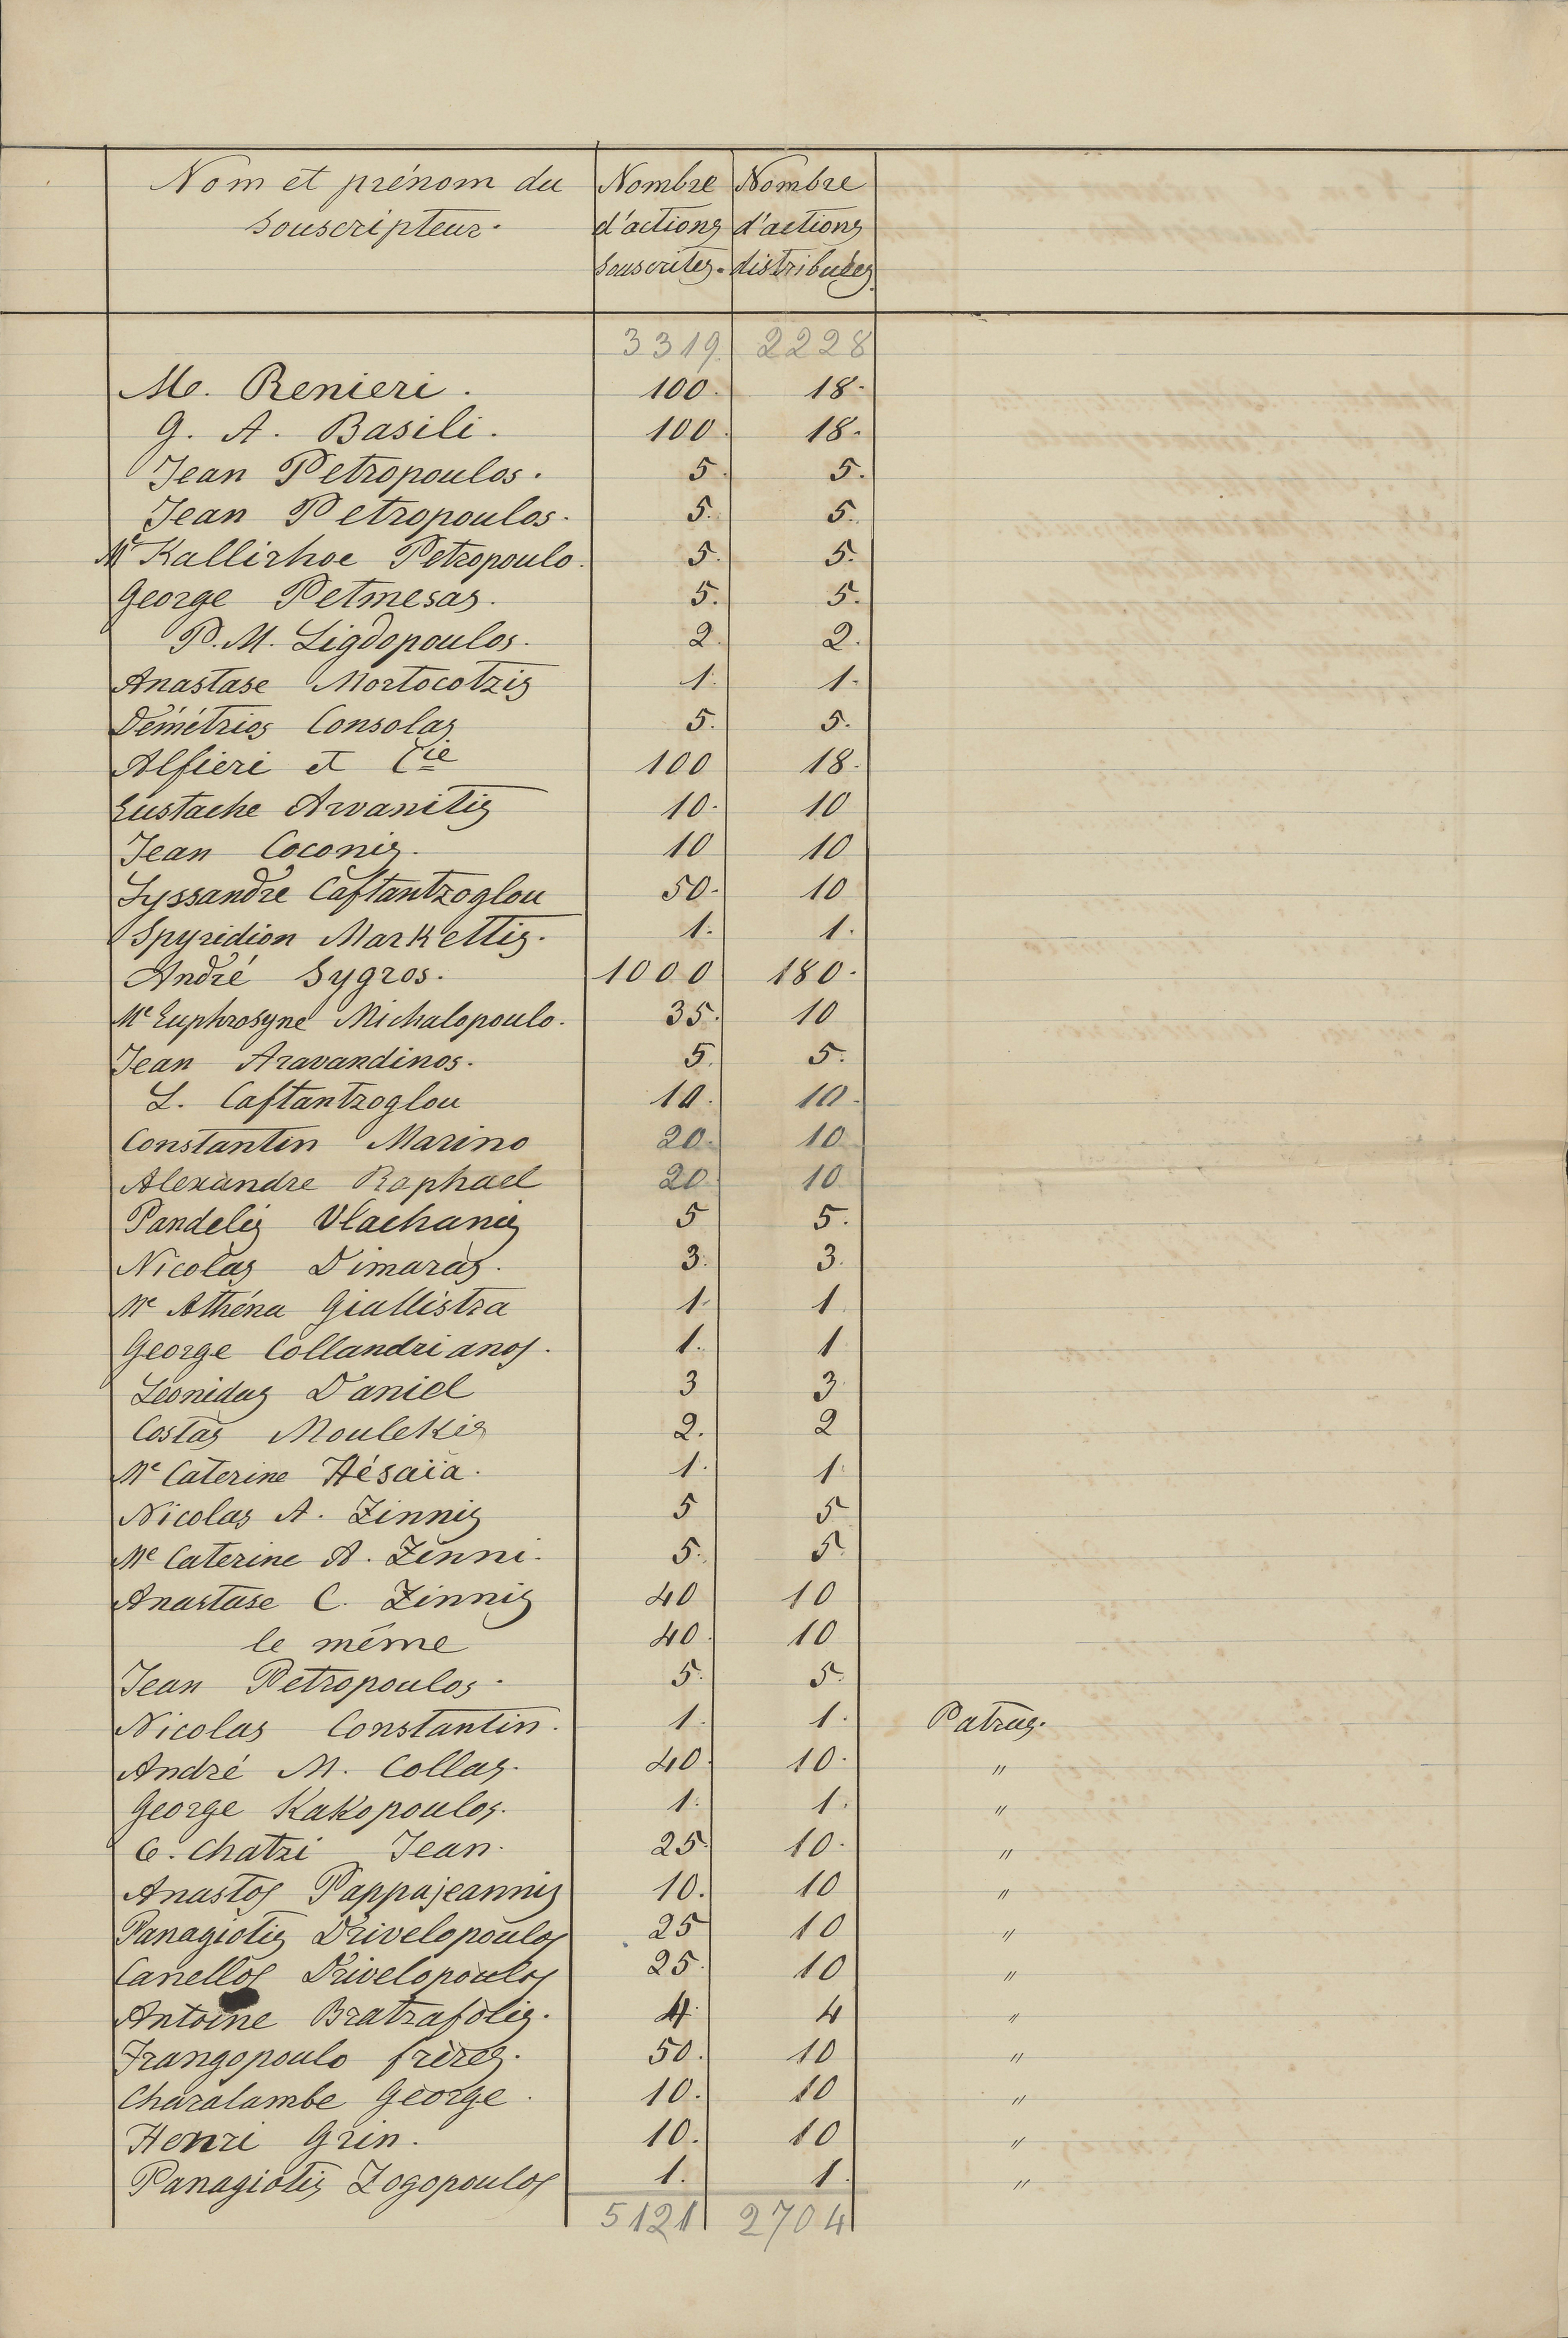 Nom et prénom du Souscripteur. Nombre d'actions Souscrites. Nombre d'actions distribuées.
3319. 2228
M. Renieri. 100. 18.
G. A. Basili. 100. 18.
Jean Petropoulos. 5. 5.
Jean Petropoulos. 5. 5.
Me Kallirhoe Petropoulo. 5. 5.
George Petmesas. 5. 5.
P. M. Ligdopoulos. 2. 2.
Anastase Mortocotzis 1. 1.
Démétrios Consolas 5. 5.
Alfieri et Cie 100 18.
Eustache Arvanitis 10. 10
Jean Coconis. 10 10
Lyssandre Caftantzoglou 50. 10
Spyridion Markettis. 1. 1.
André Sygros. 1000 180.
Me Euphrosyne Michalopoulo. 35. 10
Jean Aravandinos. 5. 5.
L. Caftantzoglou 10. 10.
Constantin Marino 20. 10
Alexandre Raphael 20 10
Pandelis Vlachanis 5 5.
Nicolas Dimaras. 3. 3.
Me Athéna Giallistra 1. 1
George Collandrianos. 1. 1
Léonidas Daniel 3 3
Costas Moulekis 2. 2
Me Caterine Hésaïa. 1. 1.
Nicolas A. Zinnis 5 5
Me Caterine A. Zinni. 5. 5.
Anastase C. Zinnis 40 10
le même 40. 10
Jean Petropoulos. 5. 5.
Nicolas Constantin. 1. 1. Patras.
André M. Collas. 40. 10. "
George Kakopoulos. 1. 1. "
C. Chatzi Jean. 25. 10. "
Anastos Pappajeannis 10. 10 "
Panagiotis Drivelopoulos 25 10 "
Canellos Drivelopoulos 25. 10 "
Antoine Bratrafolis. 4. 4 "
Frangopoulo frères. 50. 10 "
Charalambe George. 10. 10 "
Henri Grin. 10. 10 "
Panagiotis Zogopoulos 1. 1. "
5121 2704